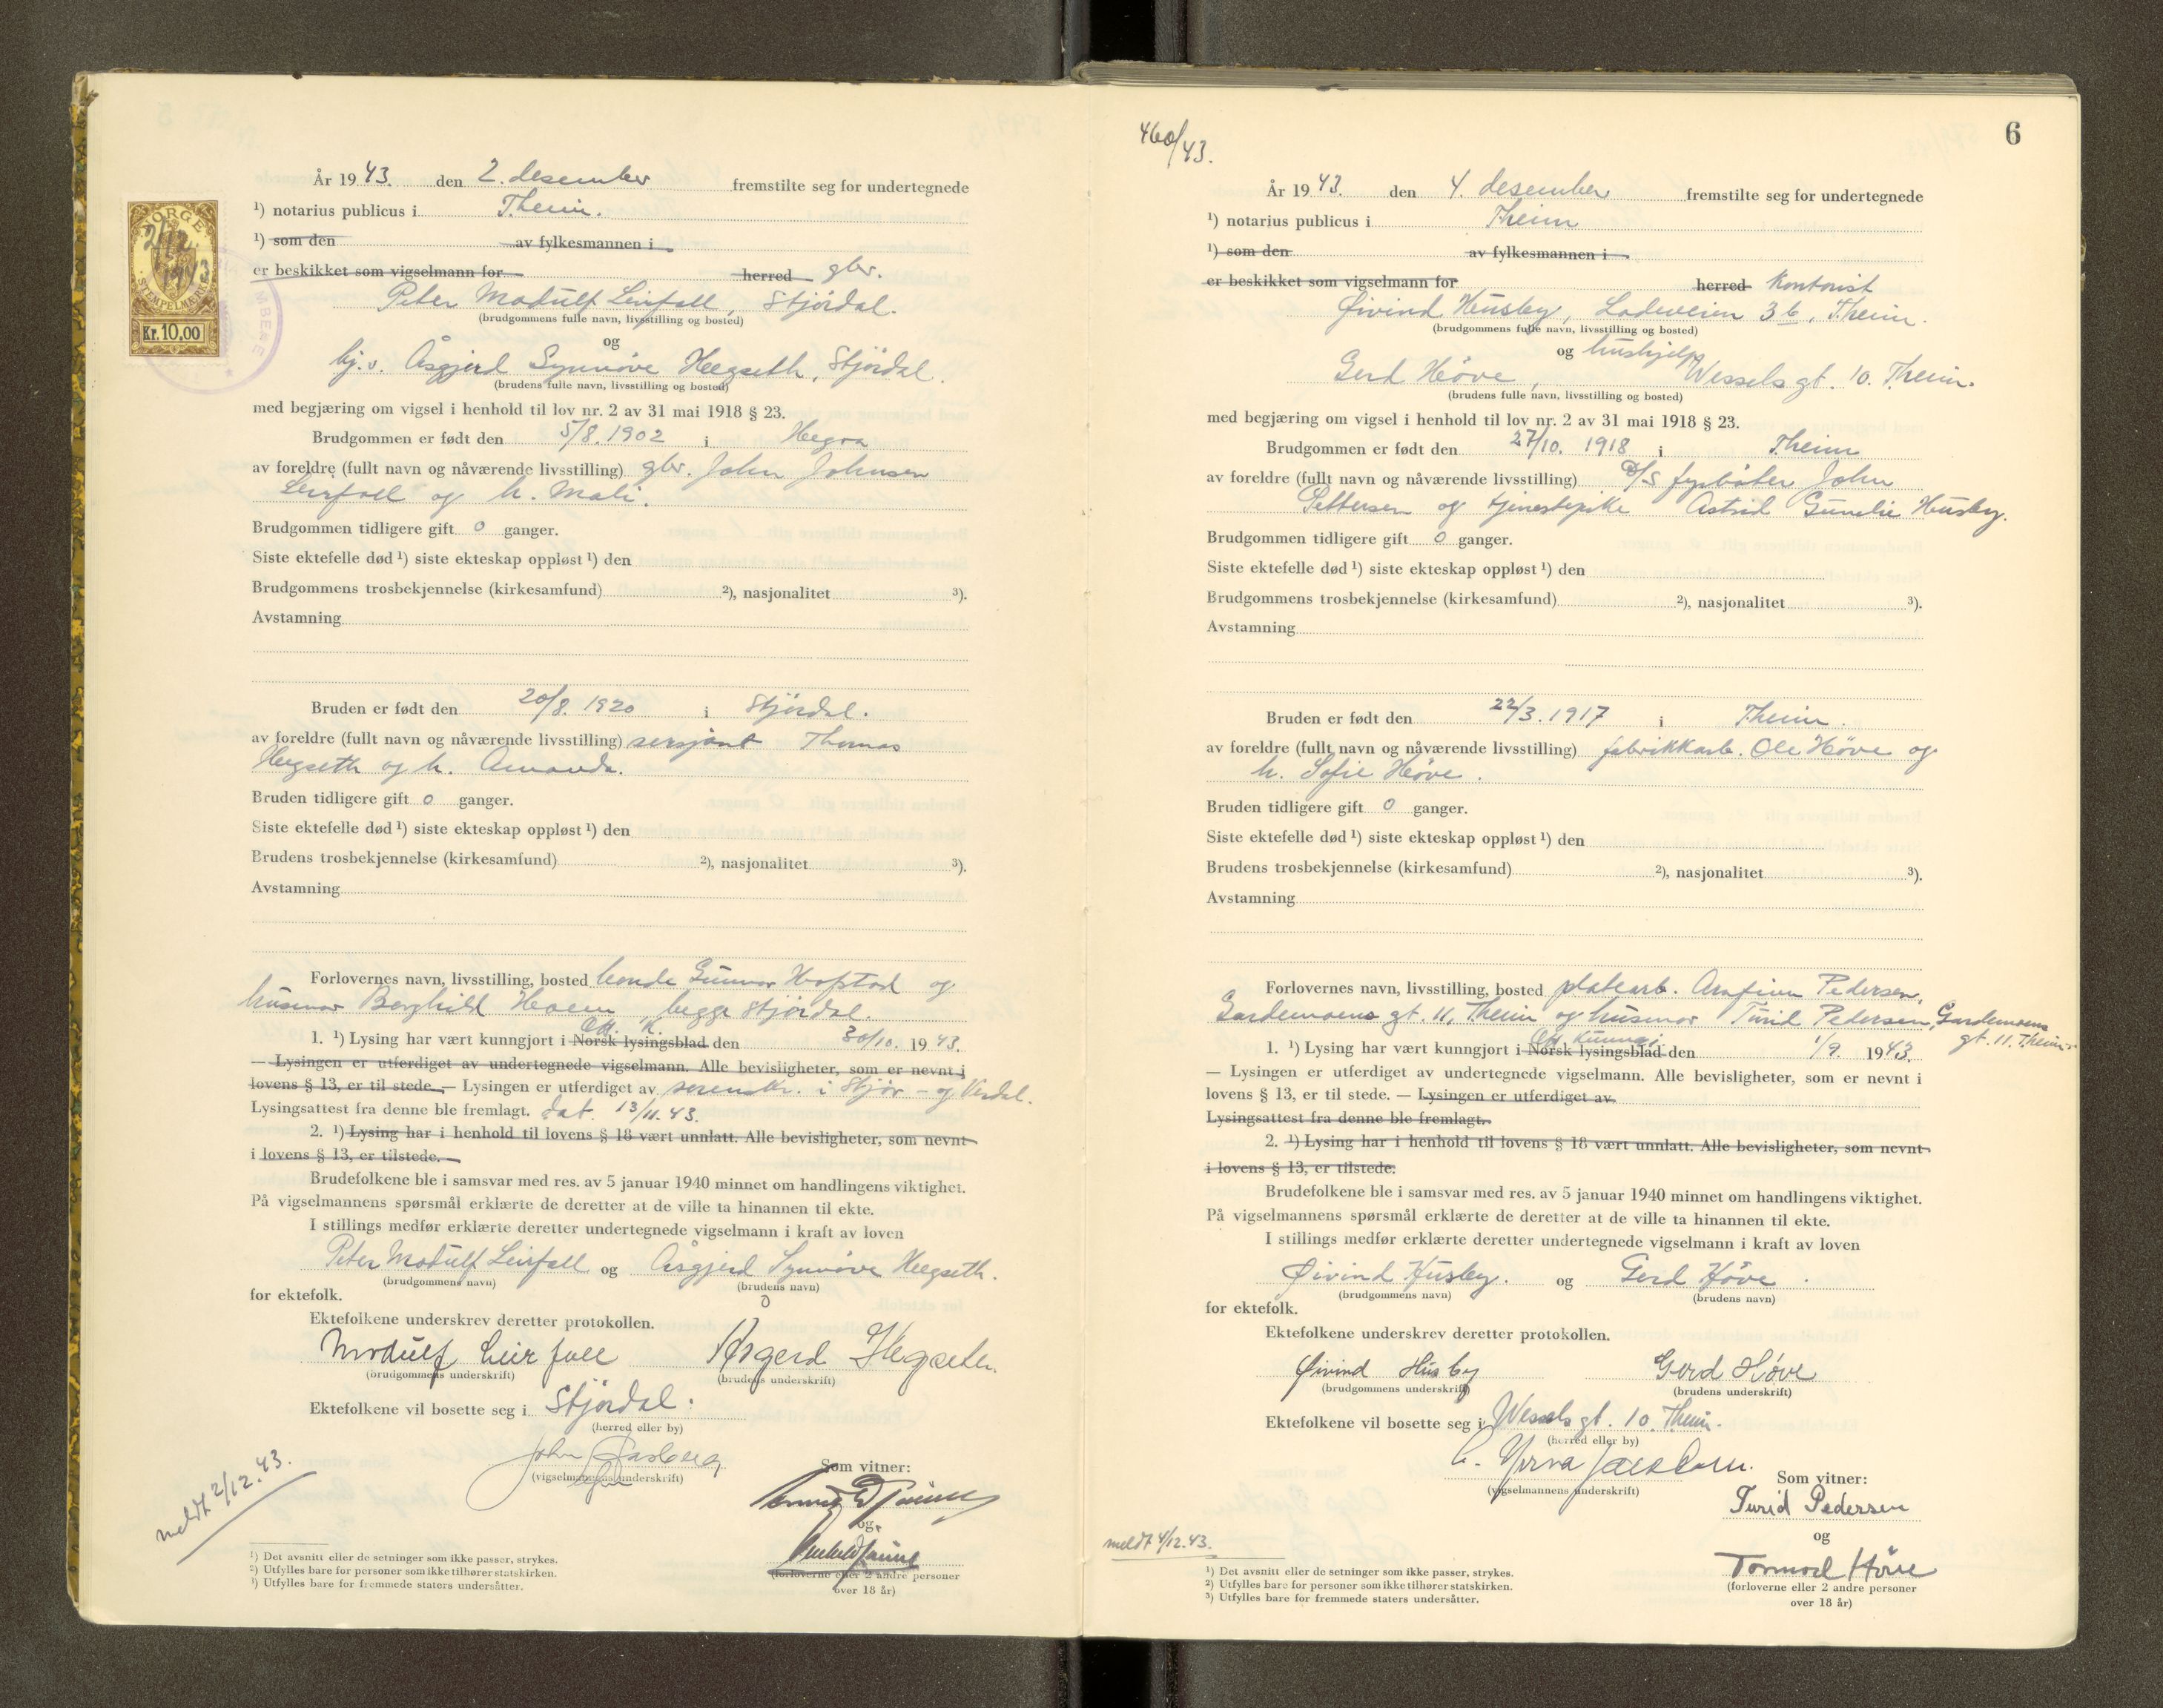 NORGE
2/12.
1943
STEMPELMERKE
Kr. 10,00
År 1943. den 2. desember fremstilte seg for undertegnede
¹) notarius publicus i T.heim.
¹) som den av fylkesmannen i
er beskikket som vigselmann for herred gbr.
Peter Modulf Leirfall, Stjørdal.
(brudgommens fulle navn, livsstilling og bosted)
og
hj.v. Åsgjerd Synnøve Hegseth, Stjørdal.
(brudens fulle navn, livsstilling og bosted)
med begjæring om vigsel i henhold til lov nr. 2 av 31 mai 1918 § 23.
Brudgommen er født den 5/8. 1902 i Hegra
av foreldre (fullt navn og nåværende livsstilling) gbr. John Johnsen
Leirfall og h. Mali.
Brudgommen tidligere gift 0 ganger.
Siste ektefelle død ¹) siste ekteskap oppløst ¹) den
Brudgommens trosbekjennelse (kirkesamfund) ²), nasjonalitet ³).
Avstamning
Bruden er født den 20/8. 1920 i Stjørdal.
av foreldre (fullt navn og nåværende livsstilling) sersjant Thomas
Hegseth og h. Amanda.
Bruden tidligere gift 0 ganger.
Siste ektefelle død ¹) siste ekteskap oppløst ¹) den
Brudens trosbekjennelse (kirkesamfund) ²), nasjonalitet ³).
Avstamning
Forlovernes navn, livsstilling, bosted bonde Gunnar Hofstad og
husmor Borghild Hoem, begge Stjørdal.
Off. K.
1. ¹) Lysing har vært kunngjort i Norsk lysingsblad den 30/10. 1943.
— Lysingen er utferdiget av undertegnede vigselmann. Alle bevisligheter, som er nevnt i
lovens § 13, er til stede. — Lysingen er utferdiget av sorenskr. i Stjør- og Verdal.
Lysingsattest fra denne ble fremlagt. dat. 13/11.43.
2. ¹) Lysing har i henhold til lovens § 18 vært unnlatt. Alle bevisligheter, som nevnt
i lovens § 13, er tilstede. —
Brudefolkene ble i samsvar med res. av 5 januar 1940 minnet om handlingens viktighet.
På vigselmannens spørsmål erklærte de deretter at de ville ta hinannen til ekte.
I stillings medfør erklærte deretter undertegnede vigselmann i kraft av loven
Peter Modulf Leirfall og Åsgjerd Synnøve Hegseth.
(brudgommens navn) (brudens navn)
for ektefolk.
Ektefolkene underskrev deretter protokollen.
Modulf Leirfall Åsgerd Hegseth.
(brudgommens underskrift) (brudens underskrift)
Ektefolkene vil bosette seg i Stjørdal.
(herred eller by)
John
(vigselmannens underskrift)
Som vitner:
og
(forloverne eller 2 andre personer
over 18 år)
meldt 2/12.43.
¹) Det avsnitt eller de setninger som ikke passer, strykes.
²) Utfylles bare for personer som ikke tilhører statskirken.
³) Utfylles bare for fremmede staters undersåtter.
460/43.
6
År 1943. den 4. desember fremstilte seg for undertegnede
¹) notarius publicus i T.heim
¹) som den av fylkesmannen i
er beskikket som vigselmann for herred Kontorist
Øivind Husby, Ladeveien 3b, T.heim.
(brudgommens fulle navn, livsstilling og bosted)
og hushjelp
Gerd Høve, Wesselsgt. 10. T.heim.
(brudens fulle navn, livsstilling og bosted)
med begjæring om vigsel i henhold til lov nr. 2 av 31 mai 1918 § 23.
Brudgommen er født den 27/10. 1918 i T.heim
av foreldre (fullt navn og nåværende livsstilling) D/S fyrbøter John
Pettersen og tjenestepike Astrid Gunelie Husby.
Brudgommen tidligere gift 0 ganger.
Siste ektefelle død ¹) siste ekteskap oppløst ¹) den
Brudgommens trosbekjennelse (kirkesamfund) ²), nasjonalitet ³).
Avstamning
Bruden er født den 22/3. 1917 i T.heim.
av foreldre (fullt navn og nåværende livsstilling) fabrikkarb. Ole Høve og
h. Sofie Høve.
Bruden tidligere gift 0 ganger.
Siste ektefelle død ¹) siste ekteskap oppløst ¹) den
Brudens trosbekjennelse (kirkesamfund) ²), nasjonalitet ³).
Avstamning
Forlovernes navn, livsstilling, bosted platearb. Arnfinn Pedersen,
Gardemoens gt. 11, T.heim og husmor Turid Pedersen, Gardemoens
gt. 11. T.heim
Off. Kunngj.
1. ¹) Lysing har vært kunngjort i Norsk lysingsblad den 1/9. 1943.
— Lysingen er utferdiget av undertegnede vigselmann. Alle bevisligheter, som er nevnt i
lovens § 13, er til stede. — Lysingen er utferdiget av
Lysingsattest fra denne ble fremlagt.
2. ¹) Lysing har i henhold til lovens § 18 vært unnlatt. Alle bevisligheter, som nevnt
i lovens § 13, er tilstede.
Brudefolkene ble i samsvar med res. av 5 januar 1940 minnet om handlingens viktighet.
På vigselmannens spørsmål erklærte de deretter at de ville ta hinannen til ekte.
I stillings medfør erklærte deretter undertegnede vigselmann i kraft av loven
Øivind Husby. og Gerd Høve.
(brudgommens navn) (brudens navn)
for ektefolk.
Ektefolkene underskrev deretter protokollen.
Øivind Husby Gerd Høve
(brudgommens underskrift) (brudens underskrift)
Ektefolkene vil bosette seg i Wessels gt. 10. T.heim.
(herred eller by)
(vigselmannens underskrift)
Som vitner:
Turid Pedersen
og
Tormod Høve
(forloverne eller 2 andre personer
over 18 år)
meldt 4/12.43.
¹) Det avsnitt eller de setninger som ikke passer, strykes.
²) Utfylles bare for personer som ikke tilhører statskirken.
³) Utfylles bare for fremmede staters undersåtter.